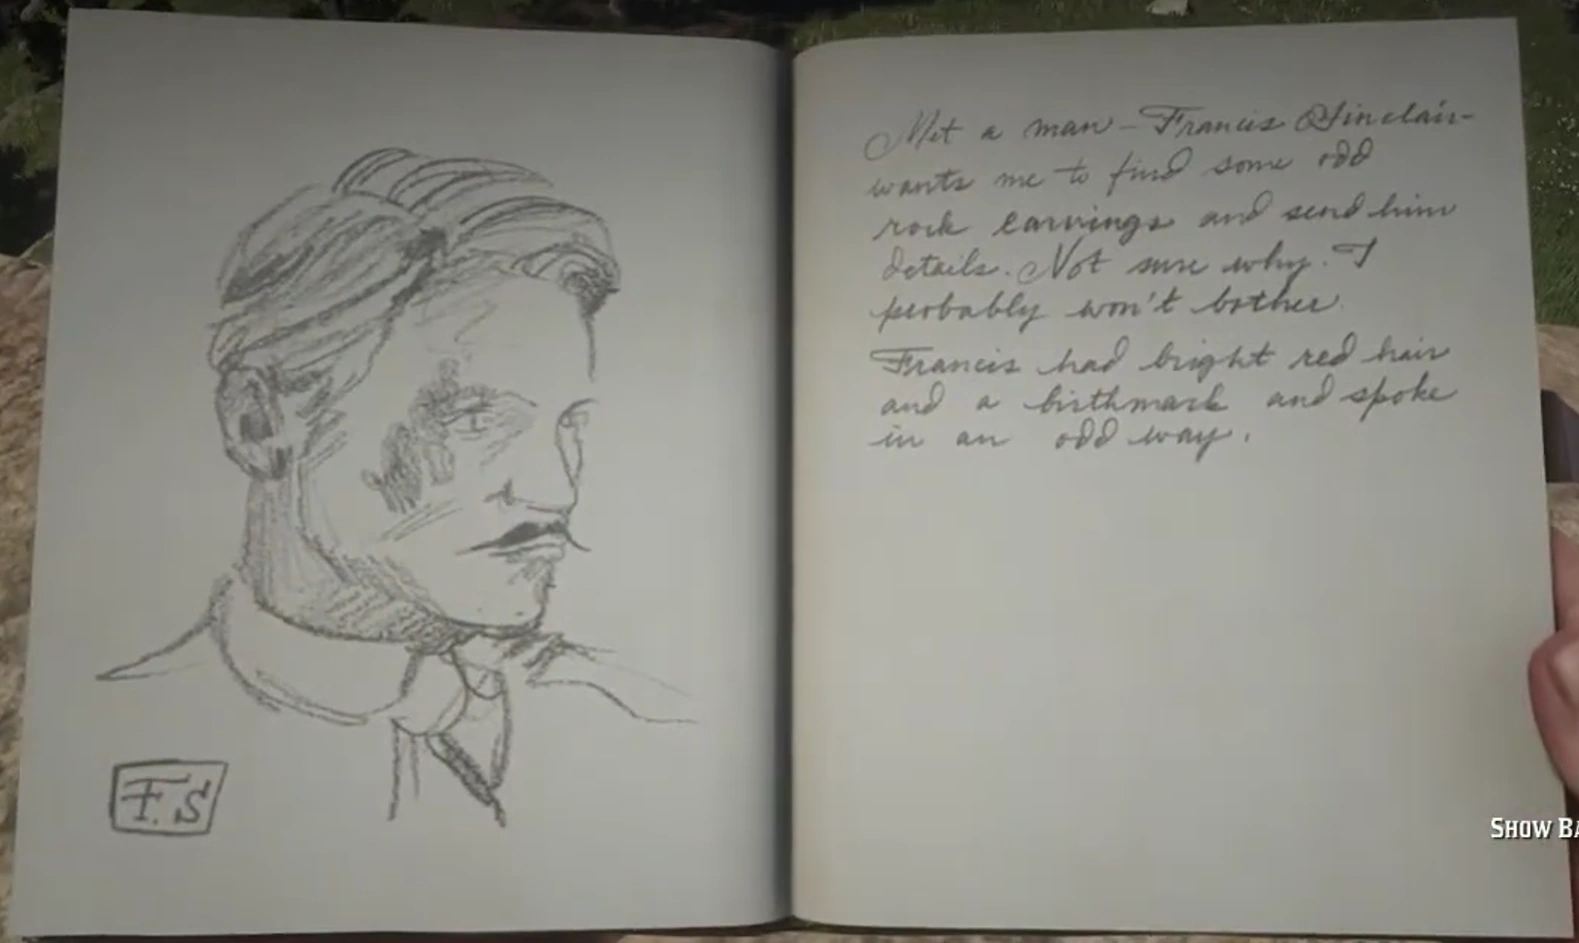 F. S
Met a man - Francis Sinclair -
wants me to find some odd
rock carvings and send him
details. Not sure why. I
probably won't bother.
Francis had bright red hair
and a birthmark and spoke
in an odd way.
SHOW BA